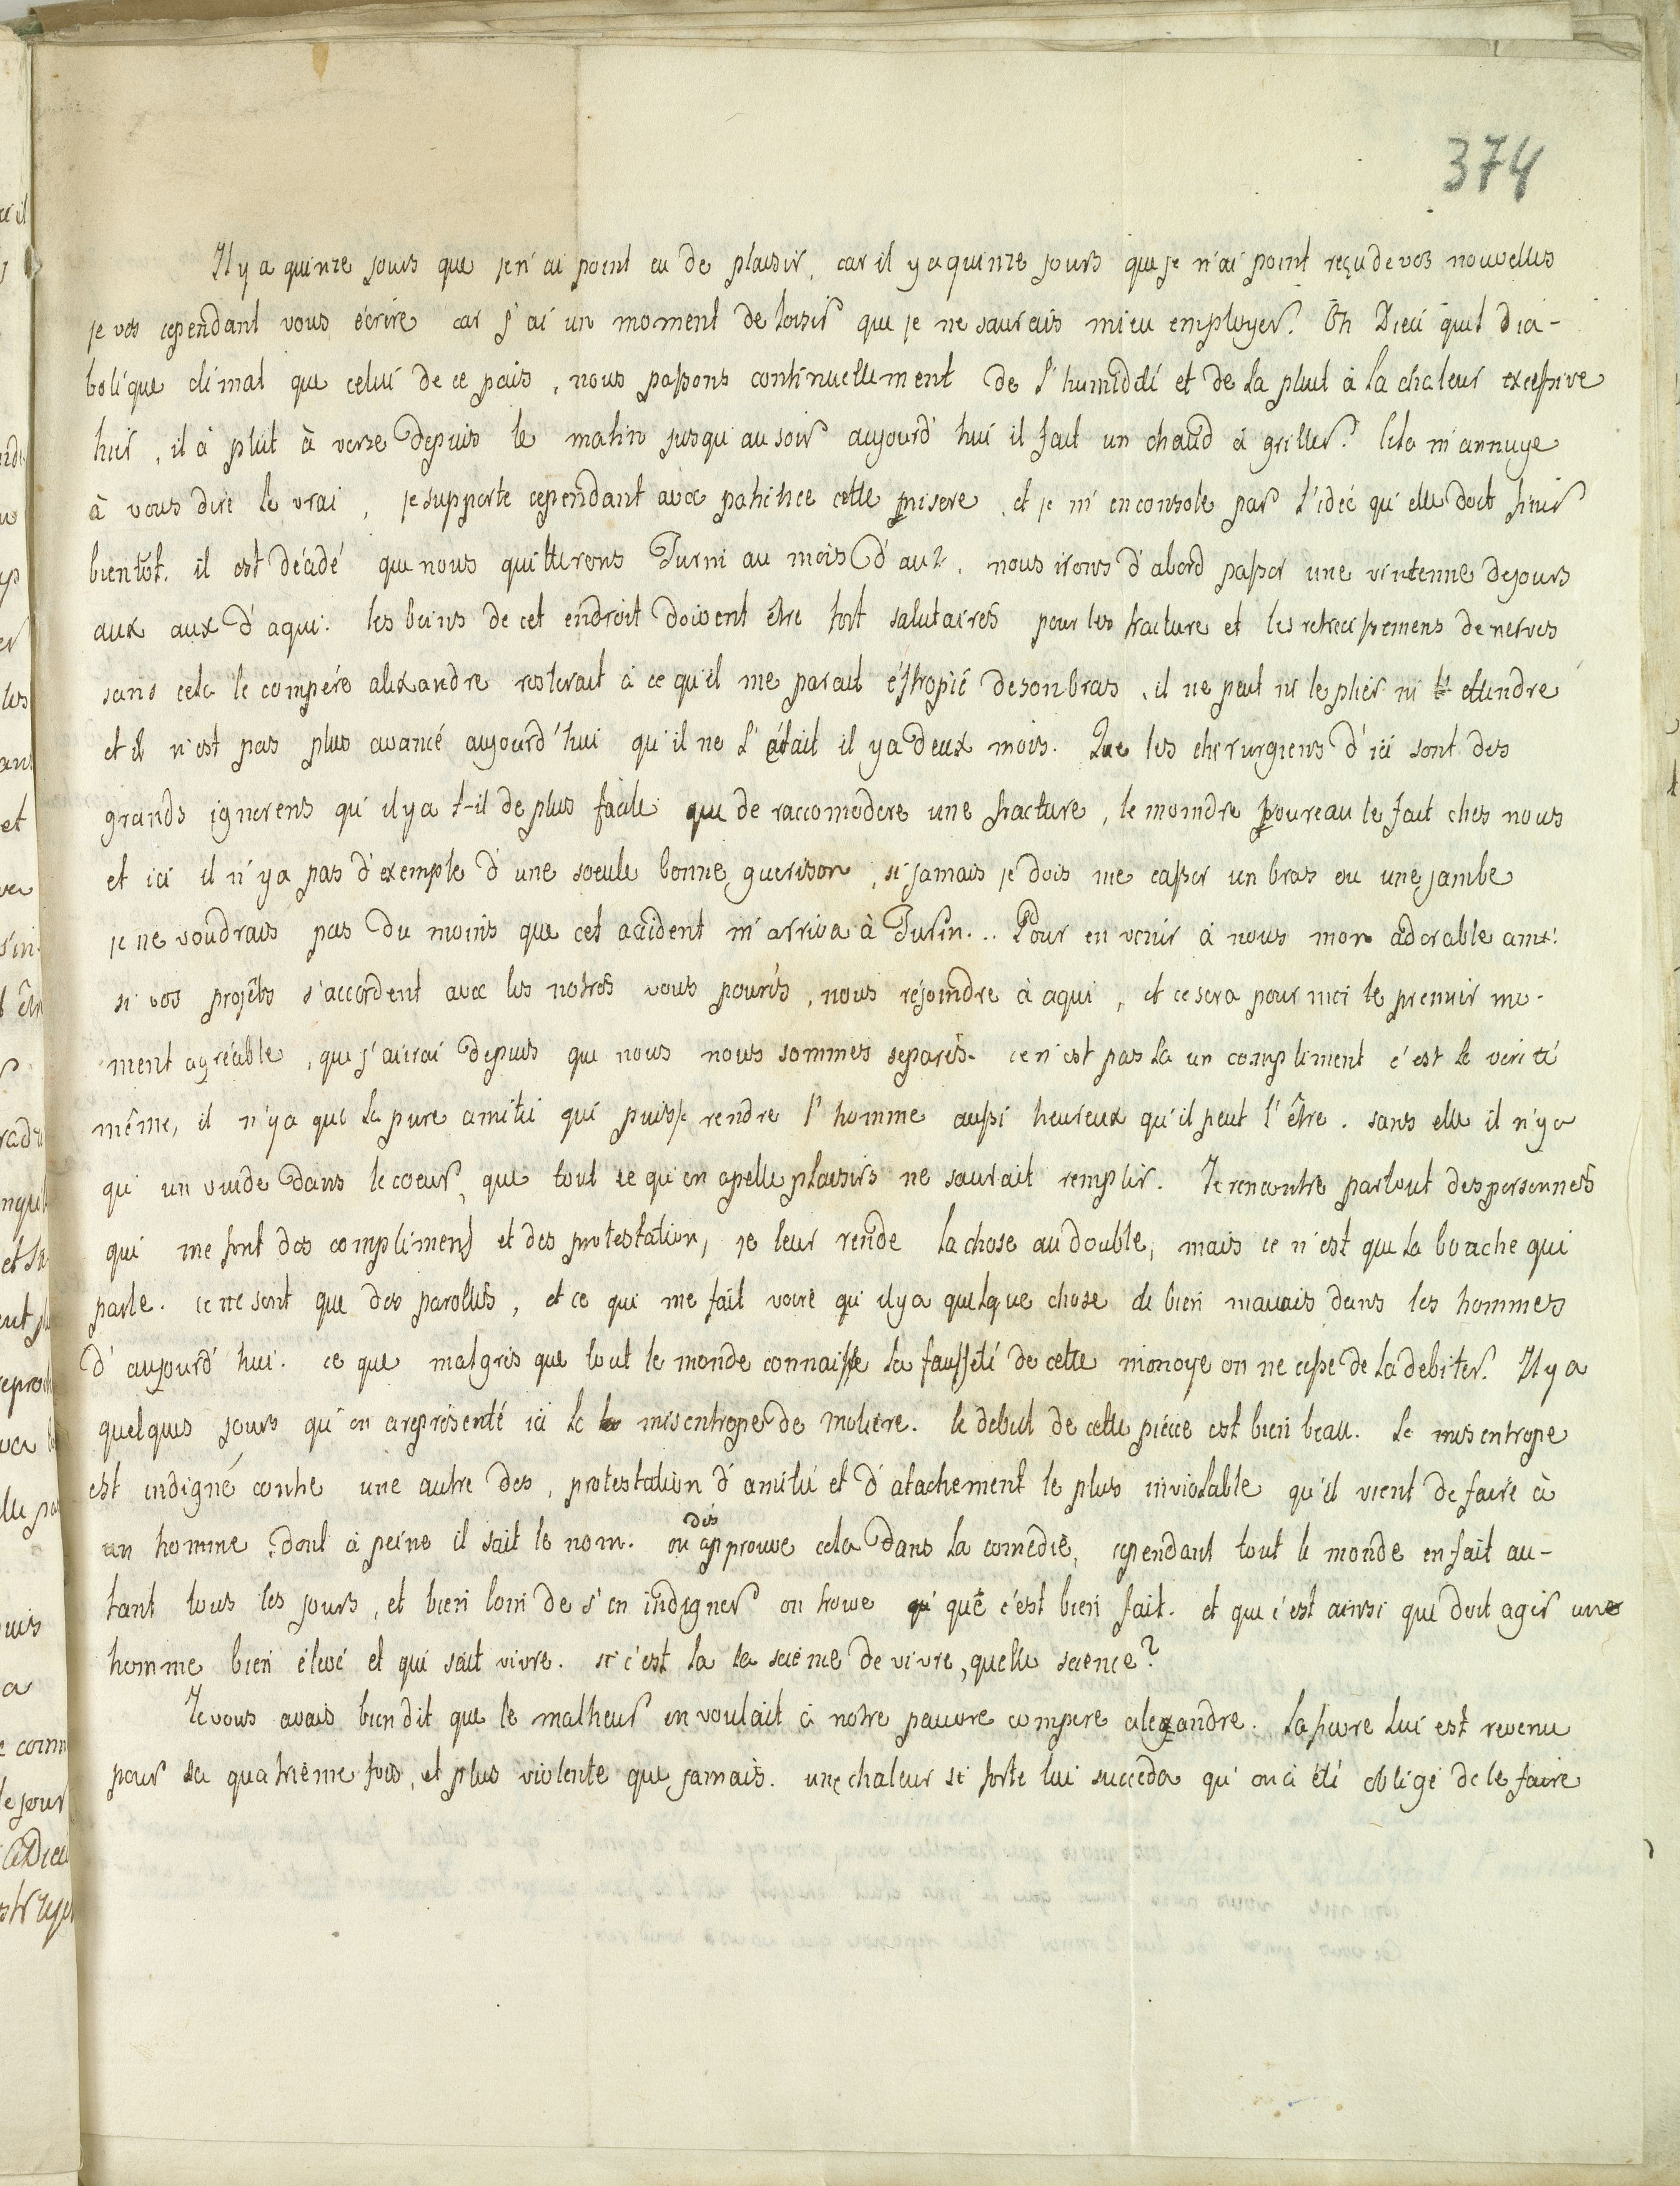 374
Il y a quinze jours que je n'ai point eu de plaisir, car il y a quinze jours que je n'ai point reçu de vos nouvelles
je ves cependant vous écrire car j'ai un moment de loisir que je ne saurais mieu employer. Oh Dieu quel dia-
bolique climat que celui de ce pais, nous passons continuellement de l'humidité et de la pluie à la chaleur excessive
hier, il à plût à verse depuis le matin jusqu'au soir aujourd'hui il fait un chaud à griller. Cela m'annuye
à vous dire le vrai, je supporte cependant avec patience cette misere, et je m'en console par l'idée qu'elle doit finir
bientôt. il est décidé que nous quitterons Turin au mois d'
nous irons d'abord passer une vintenne de jours
aux aux d'aqui. les bains de cet endroit doivent être fort salutaires pour les fracture et les retrecissemens de nerves
sans cela le compére alexandre resterait à ce qu'il me parait éstropié de son bras, il ne peut ni le plier ni l'ettendre
et il n'est pas plus avancé aujourd'hui qu'il ne l'était il y a deux mois. Que les chirurgiens d'ici sont des
grands ignorens qu'il y a t-il de plus facile que de raccomodere une fracture, le moindre boureau le fait ches nous
et ici il n'y a pas d'exemple d'une soeule bonne guerison, si jamais je dois me casser un bras ou une jambe
je ne voudrais pas du moins que cet accident m'arriva à Turin... Pour en venir à nous mon adorable ami
si vos projêts s'accordent avec les notres vous pourés, nous rejoindre à aqui, et ce sera pour moi le premier mo-
ment agréable, que j'aurai depuis que nous nous sommes separés. ce n'est pas la un compliment c'est la verité
même, il n'y a que la pure amitié qui puisse rendre l'homme aussi heureux qu'il peut l'être. sans elle il n'y a
qu'un vuide dans le coeur, que tout ce qu'on apelle plaisirs ne saurait remplir. Je rencontre partout des personnes
qui me font des complimens et des protestation, je leur rende la chose au double, mais ce n'est que la bouche qui
parle. ce ne sont que des parolles, et ce qui me fait voire qu'il y a quelque chose de bien mauvais dans les hommes
d'aujourd'hui. ce que malgrés que tout le monde connaisse la fausseté de cette monoye on ne cesse de la debiter. Il y a
quelques jours qu'on a représenté ici le misentrope de moliere. le debut de cette piéce est bien beau. Le misentrope
est indigné contre une autre des, protestation d'amitié et d'atachement le plus inviolable qu'il vient de faire à
un homme, dont à peine il sait le nom. on désapprouve cela dans la comedie, cependant tout le monde en fait au-
tant tous les jours, et bien loin de s'en indigner on trouve que c'est bien fait. et que c'est ainsi que doit agir une
homme bien élevé et qui sait vivre. si c'est la la science de vivre, quelle science?
Je vous avais bien dit que le malheur en voulait à notre pauvre compere alexandre. la fievre lui est revenu
pour la quatriéme fois, et plus violente que jamais. une chaleur si forte lui succeda qu'on à été obligé de le faire